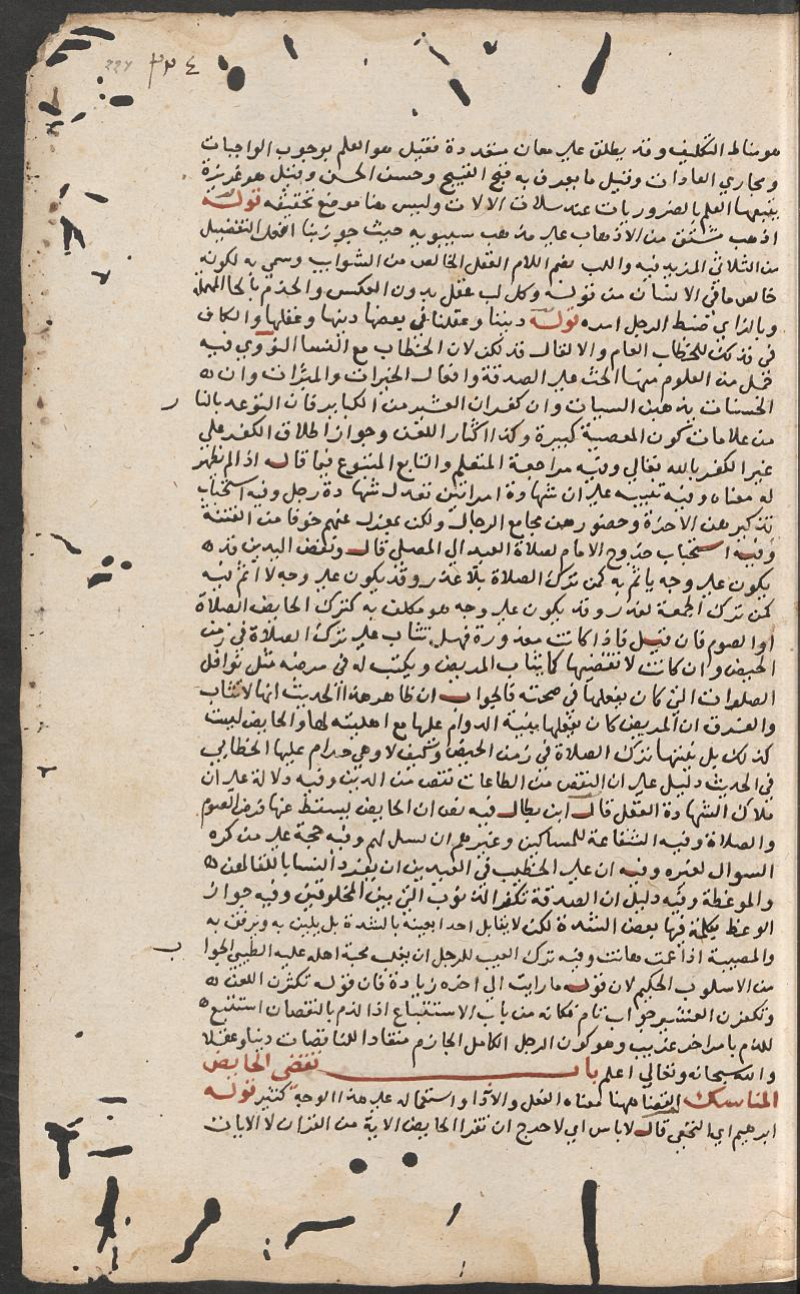 ٣٣٤
هو مناط التكليف وقد يطلق على معان متعددة فقيل هو العلم بوجوب الواجبات
ومجاري العادات وقيل ما يعرف به قبح القبيح وحسن الحسن وقيل هو غريزة
يتبعها العلم بالضروريات عند سلامة الالات وليس هنا موضع تحقيقه قوله
اذهب مشتق من الاذهاب على مذهب سيبويه حيث جوز بنا افعل التفضيل
من الثلاثي المزيد فيه واللب بضم اللام العقل الخالص من الشوايب وسمي به لكونه
خالص ما في الانسان من قوله وكل لب عقل بدون العكس والحزم بالحا المهملة
وبالزاي ضبط الرجل امره قوله ديننا وعقلنا في بعضها دينها وعقلها والكاف
في فذلك للخطاب العام والا لقال فذلكن لان الخطاب مع النسا النووي فيه
جمل من العلوم منها الحث على الصدقة وافعال الخيرات والمبرات وان
الحسنات يذهبن السيات وان كفران العشير من الكباير فان التوعد بالنا
ر
من علامات كون المعصية كبيرة وكذا اكثار اللعن وجواز اطلاق الكفر على
غير الكفر بالله تعالى وفيه مراجعة المتعلم والتابع المتبوع فيما قاله اذا لم يظهر
له معناه وفيه تنبيه على ان شهادة امراتين تعدل شهادة رجل وفيه استحباب
تذكيرهن الاخرة وحضورهن مجامع الرجال ولكن بمعزل عنهم خوفا من الفتنة
وفيه استحباب خروج الامام لصلاة العيد الى المصلى قال ونقص الدين قد
يكون على وجه ياثم به كمن ترك الصلاة بلا عذر وقد يكون على وجه لا اثم فيه
كمن ترك الجمعة لعذر وقد يكون على وجه هو مكلف به كترك الحايض الصلاة
او الصوم فان قيل فاذا كانت معذورة فهل تثاب على ترك الصلاة في زمن
الحيض وان كانت لا تقضيها كما يثاب المريض ويكتب له في مرضه مثل نوافل
الصلوات التي كان يفعلها في صحته فالجواب ان ظاهر هذا الحديث انها لا تثاب
والفرق ان المريض كان يفعلها بنية الدوام عليها مع اهليته لها والحايض ليست
كذلك بل نيتها ترك الصلاة في زمن الحيض وكيف لا وهي حرام عليها الخطابي
في الحديث دليل على ان النقص من الطاعات نقص من الدين وفيه دلالة على ان
ملاك الشهادة العقل قال ابن بطال فيه نص ان الحايض يسقط عنها فرض الصوم
والصلاة وفيه الشفاعة للمساكين وغيرهم ان يسل لهم وفيه حجة على من كره
السوال لغيره وفيه ان على الخطيب في العيدين ان يفرد النسا باللقا لهن
والموعظة وفيه دليل ان الصدقة تكفر الذنوب التي بين المخلوقين وفيه جواز
الوعظ بكلمة فيها بعض الشدة لكن لا يقابل احدا بعينه بالشدة بل يلين به ويرفق به
والمصيبة اذا عمت هانت وفيه ترك العيب للرجل ان يغلب محبة اهله عليه الطيبي الجوا
ب
من الاسلوب الحكيم لان قوله ما رايت الى اخره زيادة فان قوله تكثرن اللعن
وتكفرن العشير جواب تام فكانه من باب الاستتباع اذا لذم بالنقصان استتبع
للذم بامر اخر غريب وهو كون الرجل الكامل الحازم منقادا للناقصات دينا وعقلا
والله سبحانه وتعالى اعلم باب تقضي الحايض
المناسك القضا ههنا معناه الفعل والادا واستعماله على هذا الوجه كثير قوله
ابرهيم اي النخعي قال لا باس اي لا حرج ان تقرا الحايض الاية من القران لا الايات